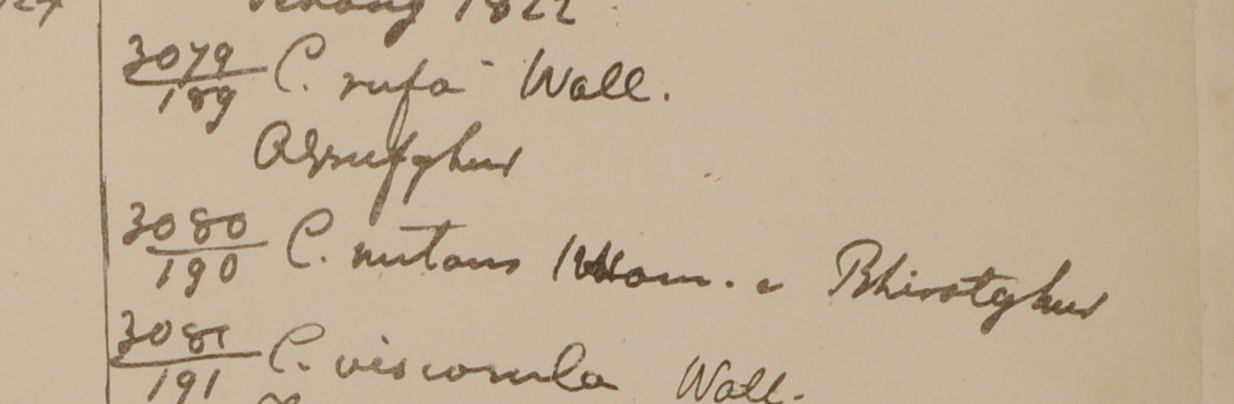 1822
3079/189 C. rufa Wall.
Assufghur
3080/190 C. nutans Ham. Bhirotghur
3081/191 C. viscosula Wall.